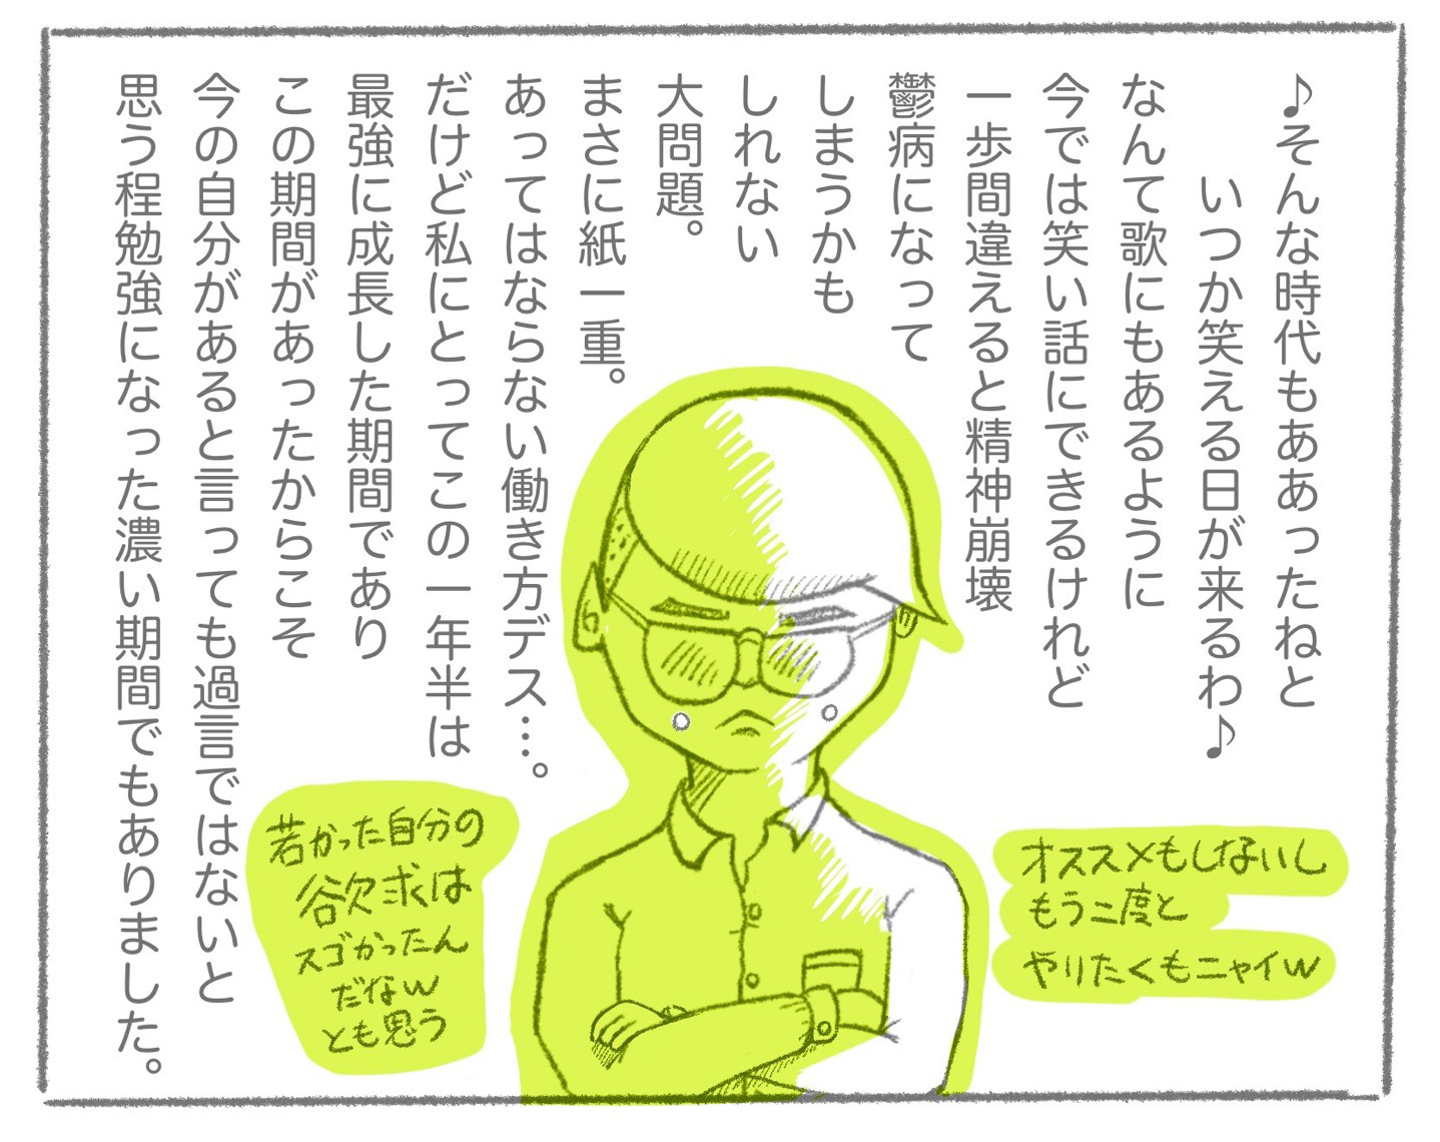 ♪そんな時代もああったねと
いつか笑える日が来るわ♪
なんて歌にもあるように
今では笑い話にできるけれど
一歩間違えると精神崩壊
鬱病になって
しまうかも
しれない
大問題。
まさに紙一重。
あってはならない働き方デス…。
だけど私にとってこの一年半は
最強に成長した期間であり
この期間があったからこそ
今の自分があると言っても過言ではないと
思う程勉強になった濃い期間でもありました。
オススメもしないし
もう二度と
やりたくもニャイw
若かった自分の
欲求は
スゴかったん
だなw
とも思う